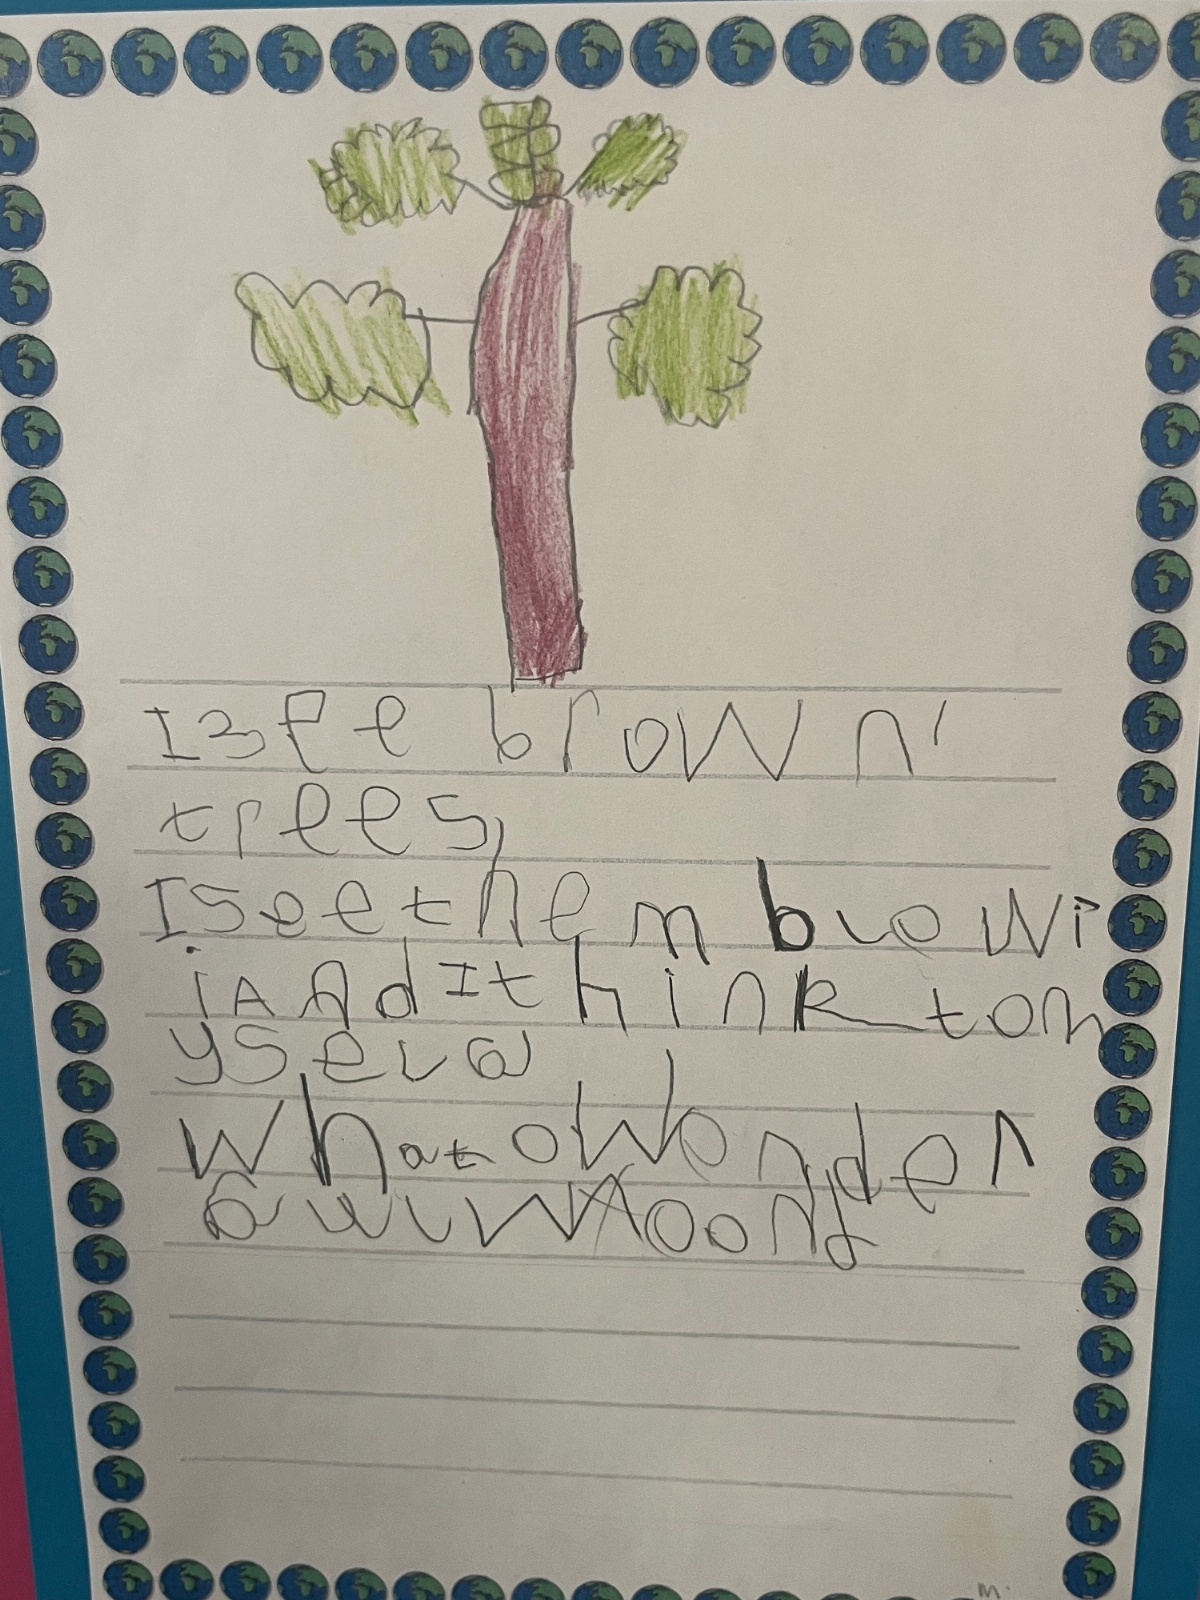 I see brown
trees,
I see them blowi
iAnd I think tom
yselo
What a wonder
ful Woond
M.